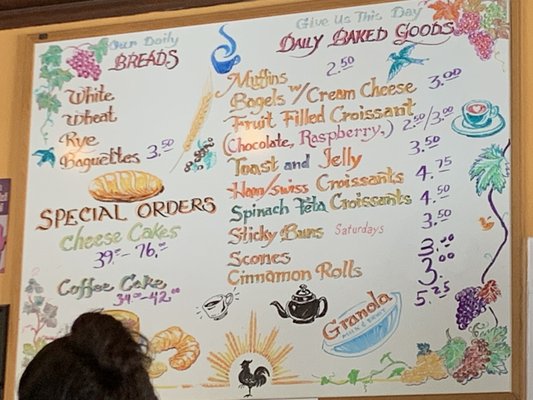 Our Daily
BREADS
White
Wheat
Rye
Baguettes 3.50
SPECIAL ORDERS
Cheese Cakes
39.- 76.00
Coffee Cake
34.00-42.00
Give Us This Day
DAILY BAKED GOODS
Muffins 2.50
Bagels w/Cream Cheese 3.00
Fruit Filled Croissant
(Chocolate, Raspberry,) 2.50/3.00
Toast and Jelly 3.50
Ham/Swiss Croissants 4.75
Spinach Feta Croissants 4.50
Sticky Buns Saturdays 3.50
Scones 3.00
Cinnamon Rolls 3.00
Granola 5.25